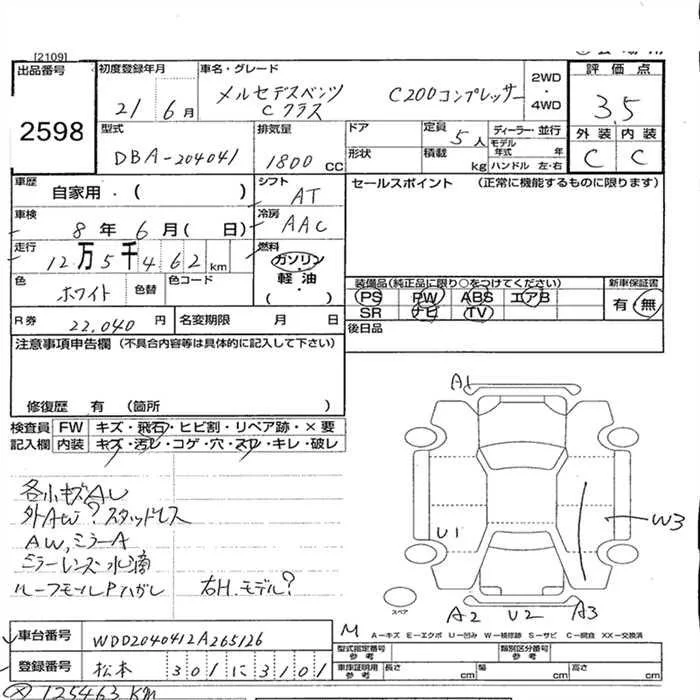 [2109]
出品番号
2598
初度登録年月
21 6月
車名・グレード
メルセデスベンツ
Cクラス
C200コンプレッサー
2WD
・
4WD
評価点
3.5
外装 内装
C C
型式
DBA-204041
排気量
1800 CC
ドア
形状
定員 5人
積載 kg
ディーラー・並行
モデル年式 年
ハンドル 左・右
車歴
自家用・( )
シフト
AT
セールスポイント (正常に機能するものに限ります)
車検
8年6月( 日)
冷房
AAC
走行
12万5千462km
燃料
ガソリン
・
軽油
( )
色
ホワイト
色替
色コード
装備品(純正品に限り○をつけてください)
PS PW ABS エアB
SR ナビ TV
新車保証書
有・無
R券 22,040円
名変期限 月 日
後日品
注意事項申告欄 (不具合内容等は具体的に記入して下さい)
修復歴 有 (箇所 )
検査員
記入欄
FW キズ・飛石・ヒビ割・リペア跡・×要
内装 キズ・汚レ・コゲ・穴・スレ・キレ・破レ
各小キズAU
外AW?スタッドレス
AW,ミラーA
ミラーレンズ水滴
ルーフモールPハガレ
右H.モデル?
A1
U1
W3
A2 U2 A3
スペア
M
A−キズ E−エクボ U−凹み W−補修跡 S−サビ C−腐食 XX−交換済
車台番号 WDD2040412A265126
登録番号 松本 301に3101
型式指定番号
参考
類別区分番号
参考
車庫証明用
参考
長さ cm
幅 cm
高さ cm
125463KM